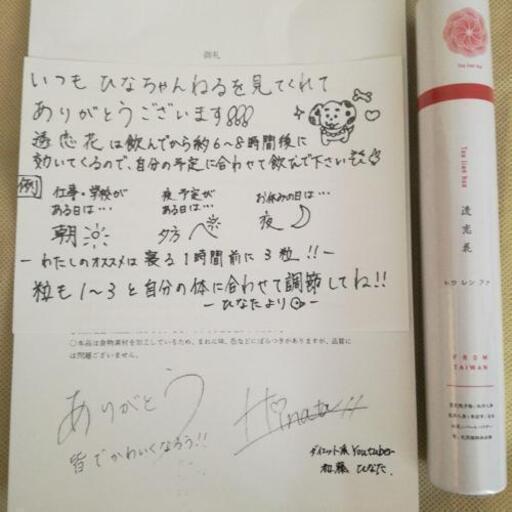 御札
いつも ひなちゃんねるを見てくれて
ありがとうございます
透恋花は飲んでから約6〜8時間後に
効いてくるので、自分の予定に合わせて飲んで下さいᅠ
例
仕事・学校が
ある日は…
朝
夜、予定が
ある日は…
夕方
お休みの日は…
夜
—わたしのオススメは寝る1時間前に3粒!!—
粒も1〜3と自分の体に合わせて調節してね!!
—ひなたより—
○本品は食物素材を加工しているため、まれには、色などにばらつきがありますが、品質に
は問題ございません。
ありがとう
皆でかわいくなろう!!
Hinata
ダイエット系Youtuber
加藤 ひなた.
Tou lian hua
Tou lian hua
透恋花
トウ レン ファ
FROM
TAIWAN